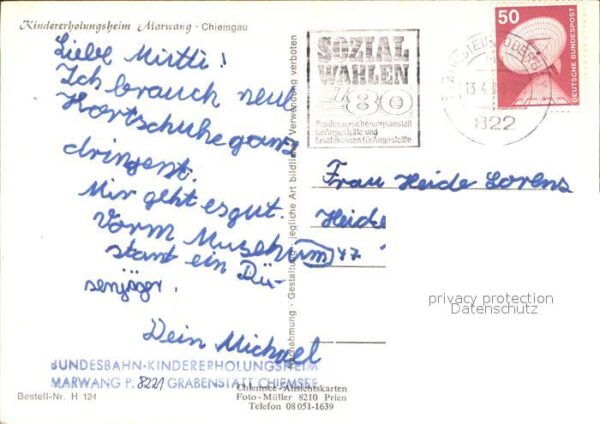 Kindererholungsheim Marwang - Chiemgau
Liebe Mutti!
Ich brauch neue
Hortschuhe ganz
dringend.
Mir geht es gut.
Vorm Museehum
stant ein Dü-
senjäger.
Dein Michael
BUNDESBAHN-KINDERERHOLUNGSHEIM
MARWANG P. 8221 GRABENSTÄTT CHIEMSEE
Bestell-Nr. H 124
Chiemsee-Ansichtskarten
Foto-Müller 8210 Prien
Telefon 08051-1639
Nachahmung - Gestaltung - jegliche Art bildlicher Verwendung verboten
SOZIAL
WAHLEN
80
für Angestellte und
Ersatzkassen für Angestellte
13.4.
822
50
DEUTSCHE BUNDESPOST
Frau Heide Lorens
Heide
47
privacy protection
Datenschutz